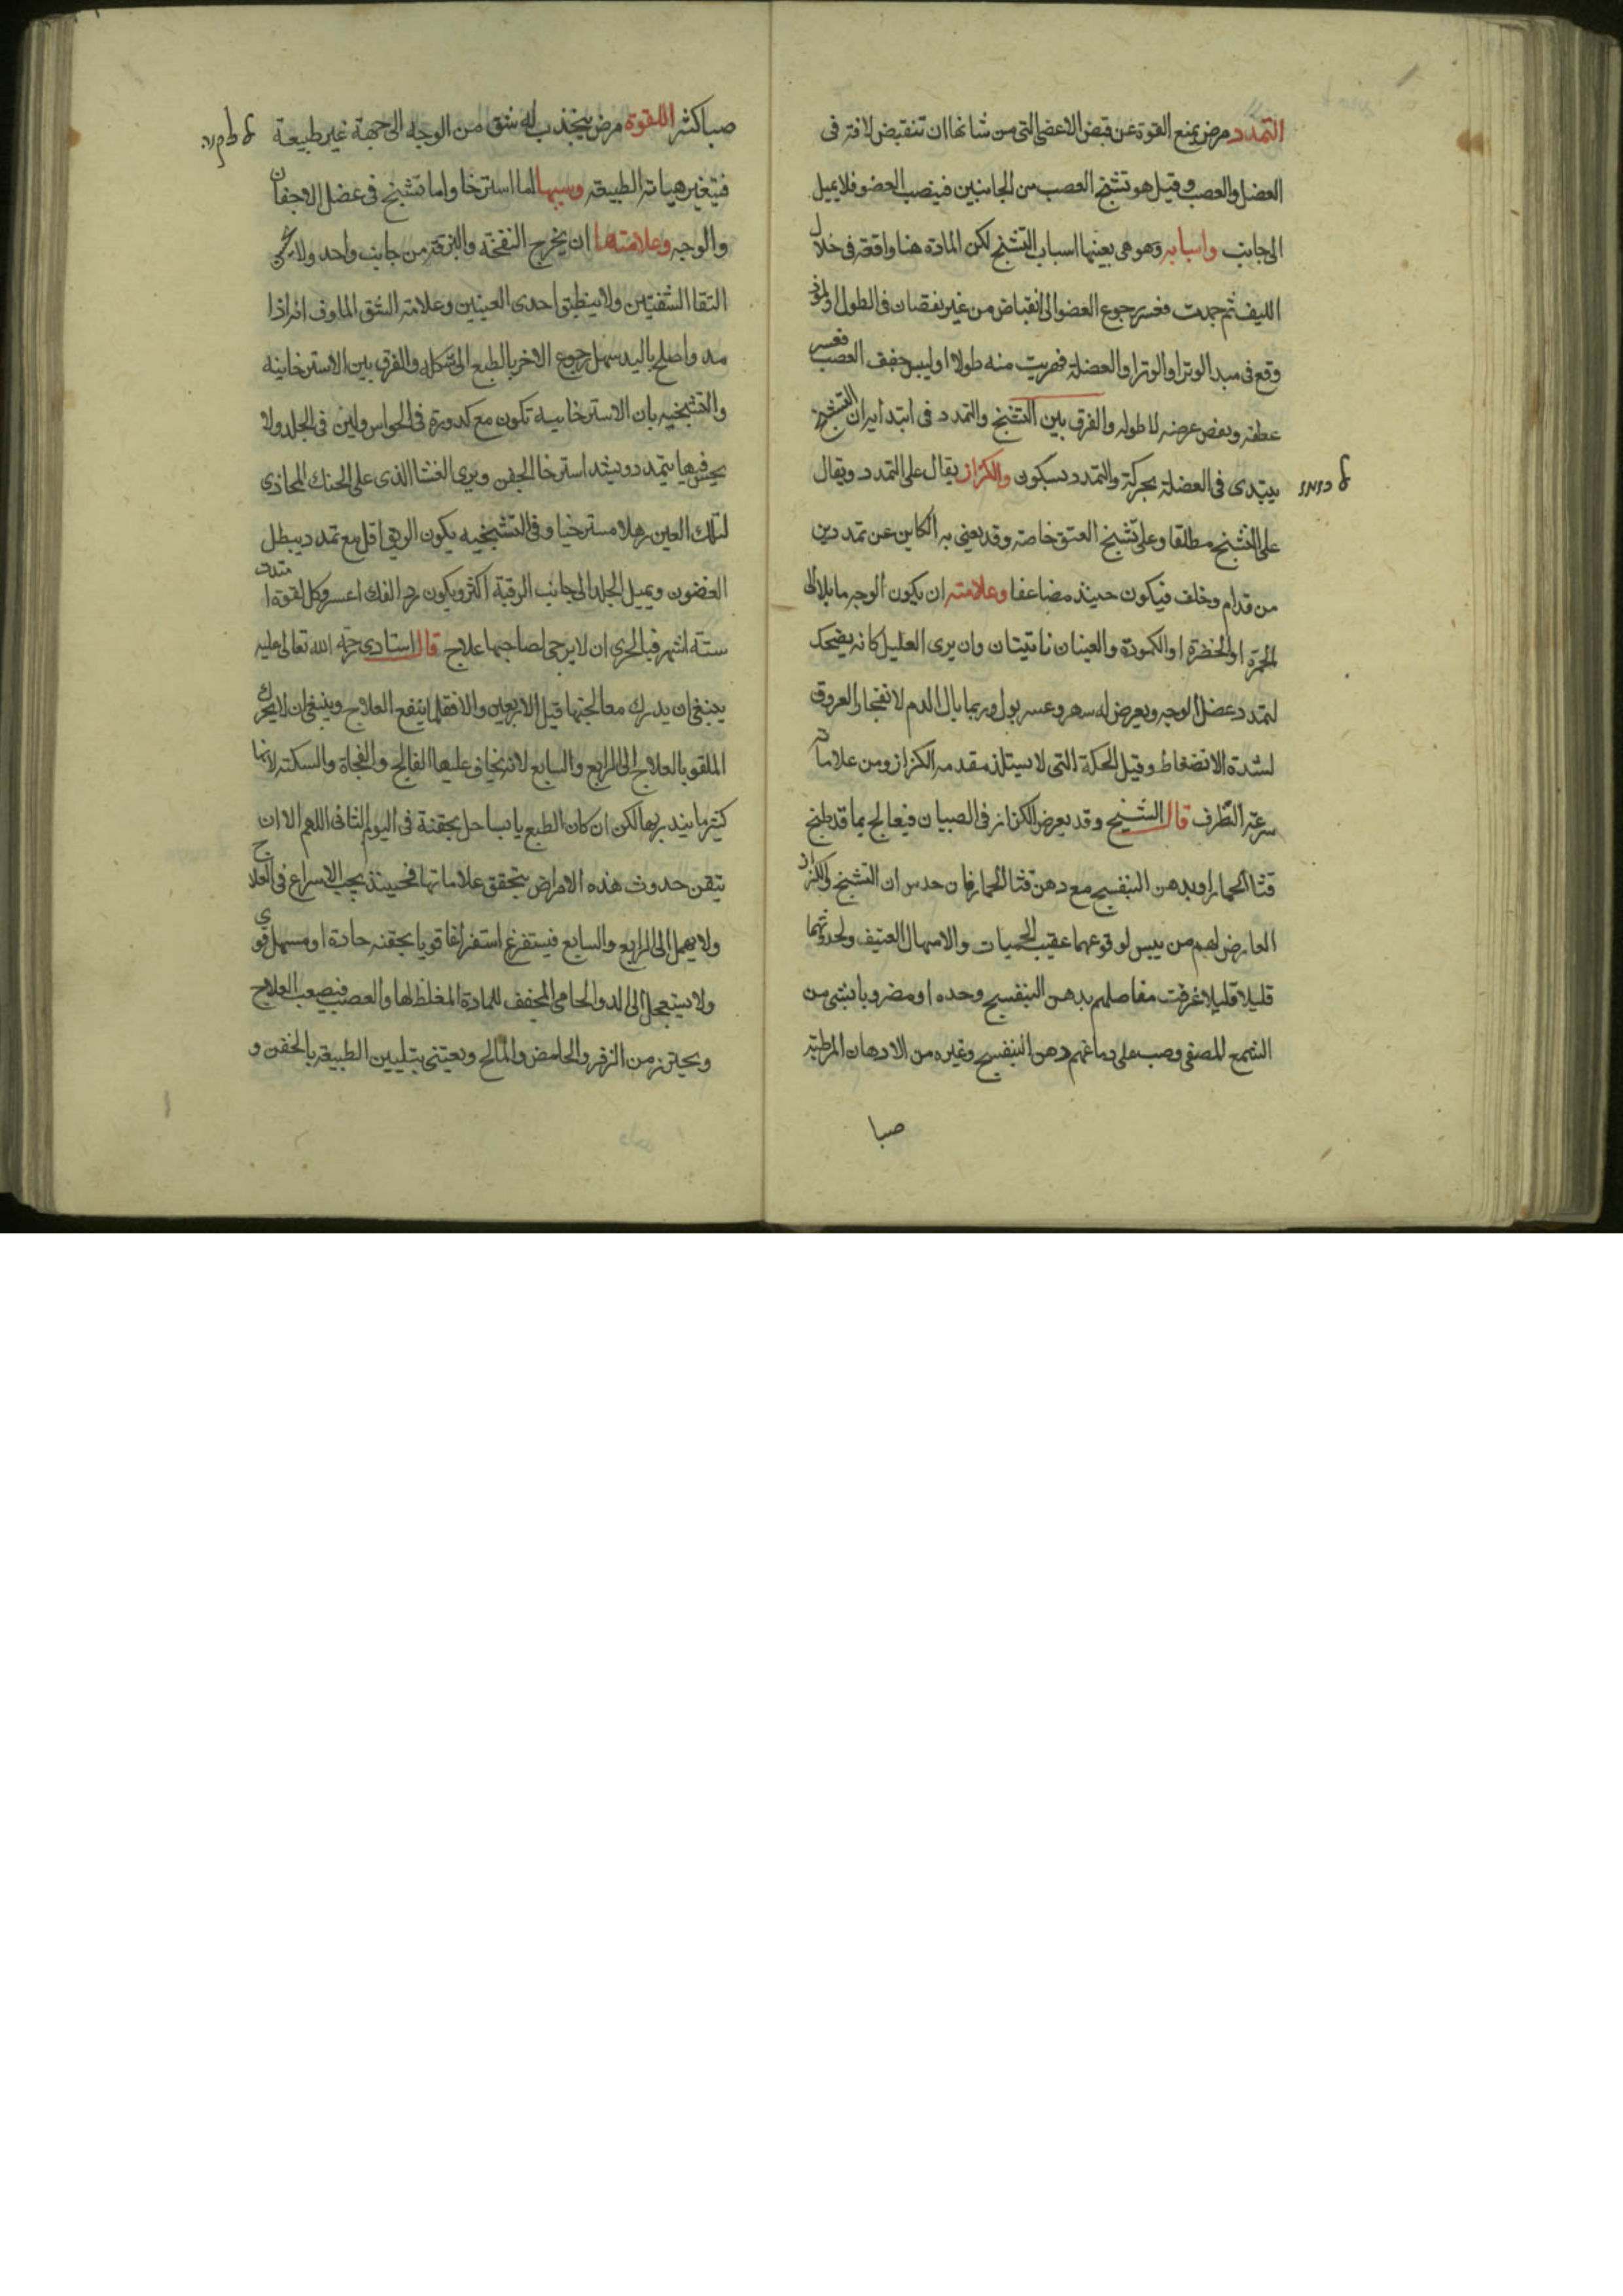 التمدد مرض يمنع القوة عن قبض الاعضا التى من شانها ان تنقبض لافة فى
العضل والعصب وقيل هو تشنج العصب من الجانبين فينصب العضو فلا يميل
الى جانب واسبابه وهو هى بعينها اسباب التشنج لكن المادة هنا واقعة فى خلال
الليف ثم جمدت فعسر رجوع العضو الى انقباض من غير نقصان فى الطول او لموذ
وقع فى مبدا الوتر او الوتر او العضلة فهربت منه طولا او ليبس جفف العصب فعسر
عطفه ونقص عرضه لا طوله والفرق بين التشنج والتمدد فى ابتدا ايران التشنج
يبتدى فى العضلة بحركة والتمدد بسكون والكزاز يقال على التمدد ويقال
على التشنج مطلقا وعلى تشنج العنق خاصة وقد يعنى به الكاين عن تمددين
من قدام وخلف فيكون حينئذ مضاعفا وعلامته ان يكون الوجه مايلا الى
الحمرة او الخضرة او الكمودة والعينان ناتيتان وان يرى العليل كانه يضحك
لتمدد عضل الوجه ويعرض له سهر وعسر بول وربما بال الدم لانفجار العروق
لشدة الانضغاط وقيل الحكة التى لا يستلذ مقدمة الكزاز ومن علاماته
سرعة الطرف قال الشيخ وقد يعرض الكزاز فى الصبيان فيعالج بما قد طبخ
قثا الحمار او بدهن البنفسج مع دهن قثا الحمار فان حدس ان التشنج والكزاز
العارض لهم من يبس لوقوعهما عقيب الحميات والاسهال العنيف ولحدوثهما
قليلا قليلا غرقت مفاصلهم بدهن البنفسج وحده او مضروبا بشى من
الشمع المصفى وصب على دماغهم دهن البنفسج وغيره من الادهان المرطبة
صبا
صبا كثر اللقوة مرض ينجذب له شق من الوجه الى جهة غير طبيعة
فيتغير هياته الطبيعة وسببها اما استرخا واما تشنج فى عضل الاجفان
والوجه وعلامتها ان يخرج النفخة والبزقة من جانب واحد ولا يمكن
التقا الشفتين ولا ينطبق احدى العينين وعلامة الشق الماوف انه اذا
مد واصلح باليد سهل رجوع الاخر بالطبع الى شكله والفرق بين الاسترخاينه
والتشنجيه بان الاسترخاييه تكون مع كدورة فى الحواس ولين فى الجلد ولا
يحس فيها بتمدد ويشد استرخا الجفن ويرى الغشا الذى على الحنك المحاذى
لتلك العين رهلا مسترخيا وفى التشنجيه يكون الريق اقل مع تمدد يبطل
الغضون ويميل الجلد الى جانب الرقبة اكثر ويكون رد الفك اعسر وكل لقوة امتدت
ستة اشهر فبالحرى ان لا يرجى لصاحبها علاج قال استادى رحمة الله تعالى عليه
ينبغى ان يدرك معالجتها قبل الاربعين والا فقلما ينفع العلاج وينبغى ان لا يحرك
الملقو بالعلاج الى الرابع والسابع لانه يخاف عليها الفالج والفجاة والسكتة لانها
كثر ما ينذر بها لكن ان كان الطبع يابسا حل بحقنة فى اليوم الثانى اللهم الا ان
يتقن حدوث هذه الامراض بتحقق علاماتها فحينئذ يجب الاسراع فى العلاج
ولا يهمل الى الرابع والسابع فيستفرغ استفراغا قويا بحقنه حادة او مسهل قوى
ولا يستعجل الى الدوا الحامى المجفف للمادة المغلظ لها والعصب فيصعب العلاج
ويحترز من الزفر والحامض والمالح ويعتنى بتليين الطبيعة بالحقن و